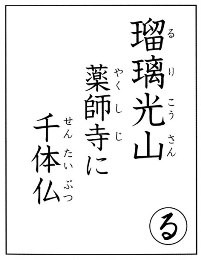 瑠璃光山
るりこうさん
薬師寺に
やくしじ
千体仏
せんたいぶつ
る